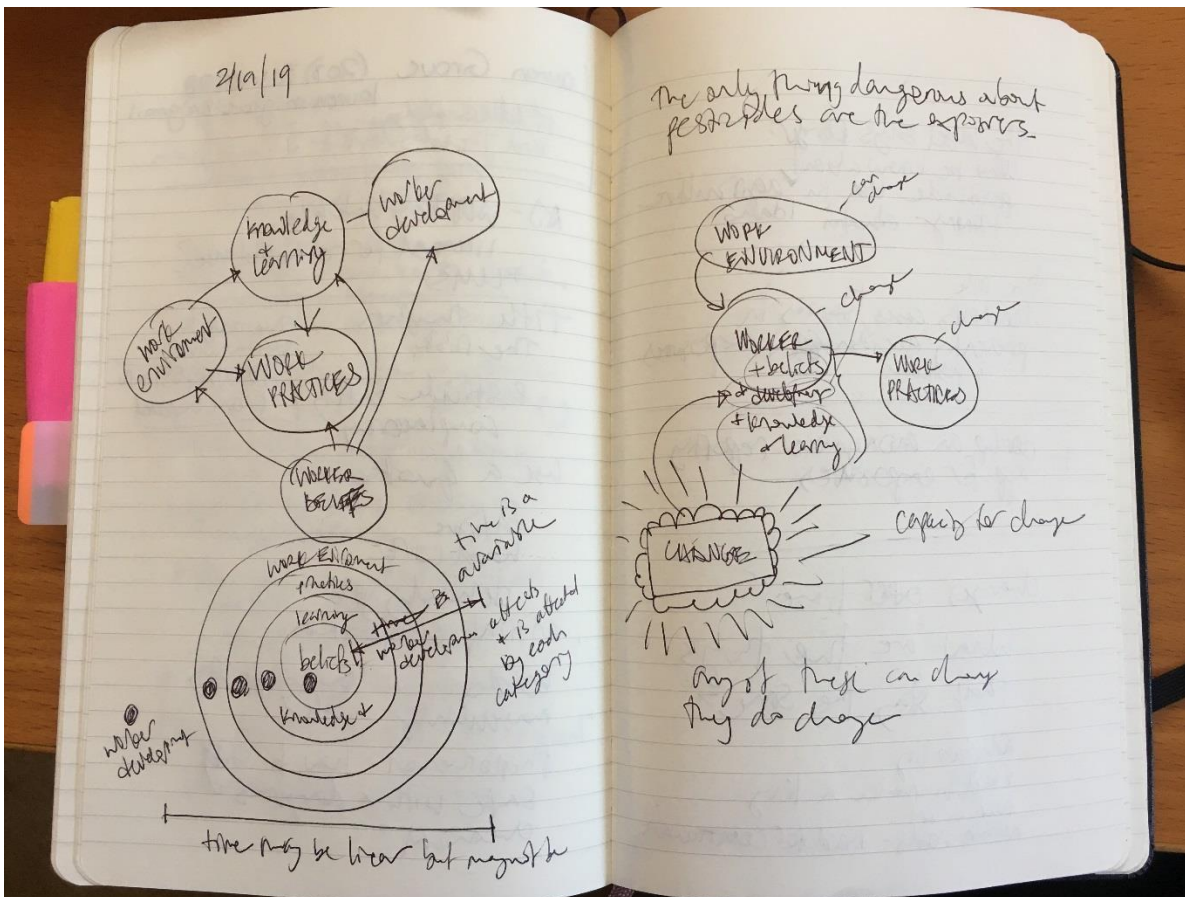 2/19/19
knowledge
+
learning
worker
development
work
environment
WORK
PRACTICES
WORKER
BELIEFS
WORK ENVIRONMENT
practices
learning
beliefs
knowledge +
time is
worker
development
time is a
variable
affects
+ is affected
by each
category
worker
development
time may be linear but may not be
The only thing dangerous about
pesticides are the exposures.
can
change
WORK
ENVIRONMENT
change
WORKER
+ beliefs
+ development
+ knowledge
+ learning
change
WORK
PRACTICES
CHANGE
capacity for change
any of these can change
they do change